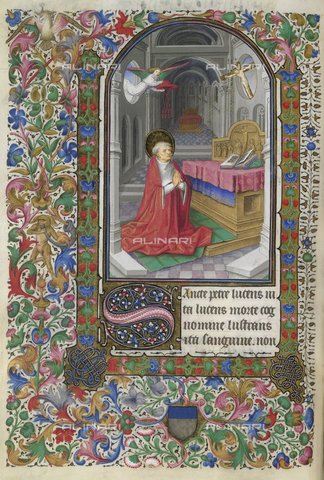 ALINARI
ALINARI
ALINARI
Sancte petre lucens in
ta lucens morte cog
nomine lustrans
ita sanguine. non
ALINARI
ALINARI